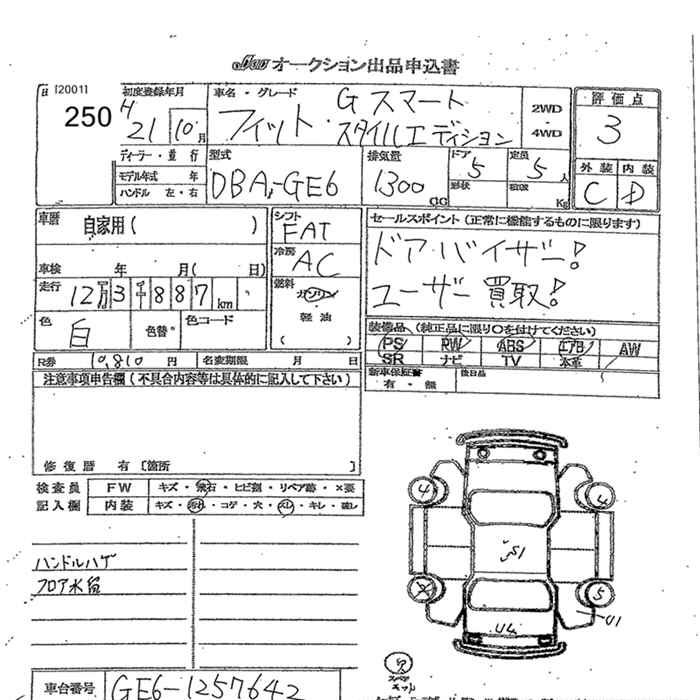 JU オークション出品申込書
[2001]
250
初度登録年月
H 21 10月
車名・グレード
フィット Gスマートスタイルエディション
2WD
・
4WD
評価点
3
外装 内装
C D
ディーラー・並行
モデル年式 年
ハンドル 左・右
型式
DBA-GE6
排気量
1300 CC
ドア 5
形状
定員 5人
Kg
車歴 自家用( )
車検 年 月( 日)
走行 12万3千887km
色 白 色替 色コード
シフト
FAT
冷房
AC
燃料
ガソリン
軽油
( )
セールスポイント(正常に機能するものに限ります)
ドアバイザー!
ユーザー買取!
装備品(純正品に限り○を付けてください)
PS PW ABS エアB AW
SR ナビ TV 本革
新車保証書
有・無
後日品
R券 10,810円 名変期限 月 日
注意事項申告欄(不具合内容等は具体的に記入して下さい)
修復歴 有 [箇所 ]
検査員 FW キズ・飛石・ヒビ割・リペア跡・×要
記入欄 内装 キズ・汚れ・コゲ・穴・スレ・キレ・破レ
ハンドルハゲ
フロア水
4 4
S1
5
U1
U4
スペア
車台番号 GE6-1257642